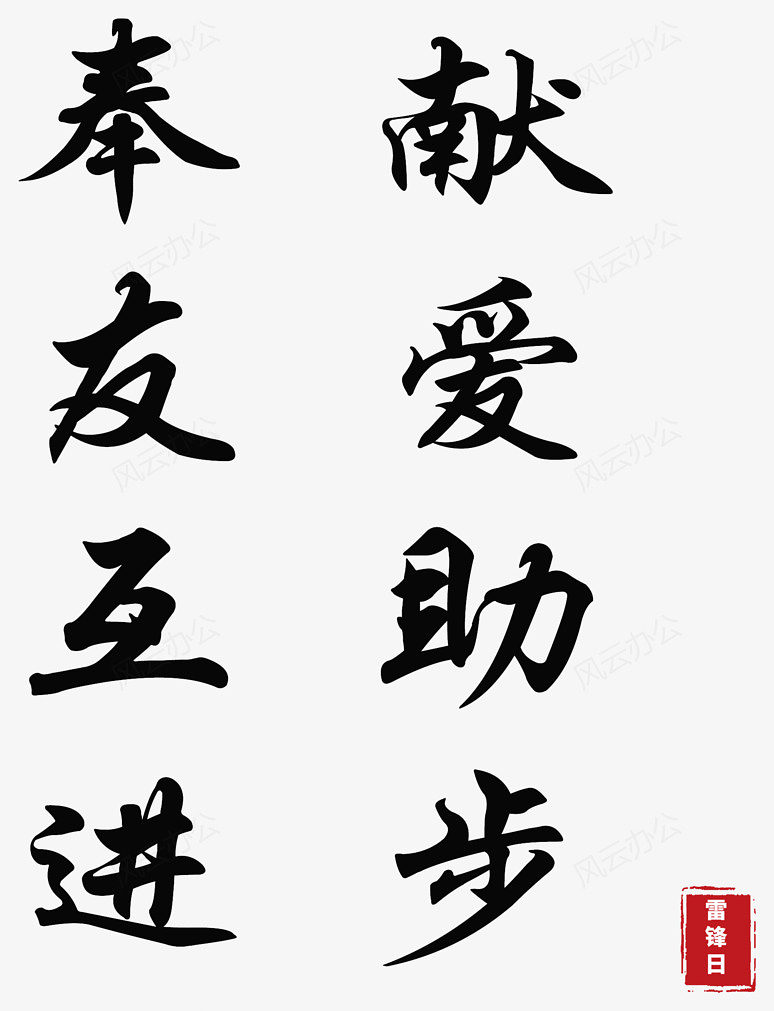 奉献
友爱
互助
进步
雷锋日
风云办公
风云办公
风云办公
风云办公
风云办公
风云办公
风云办公
风云办公
风云办公
风云办公